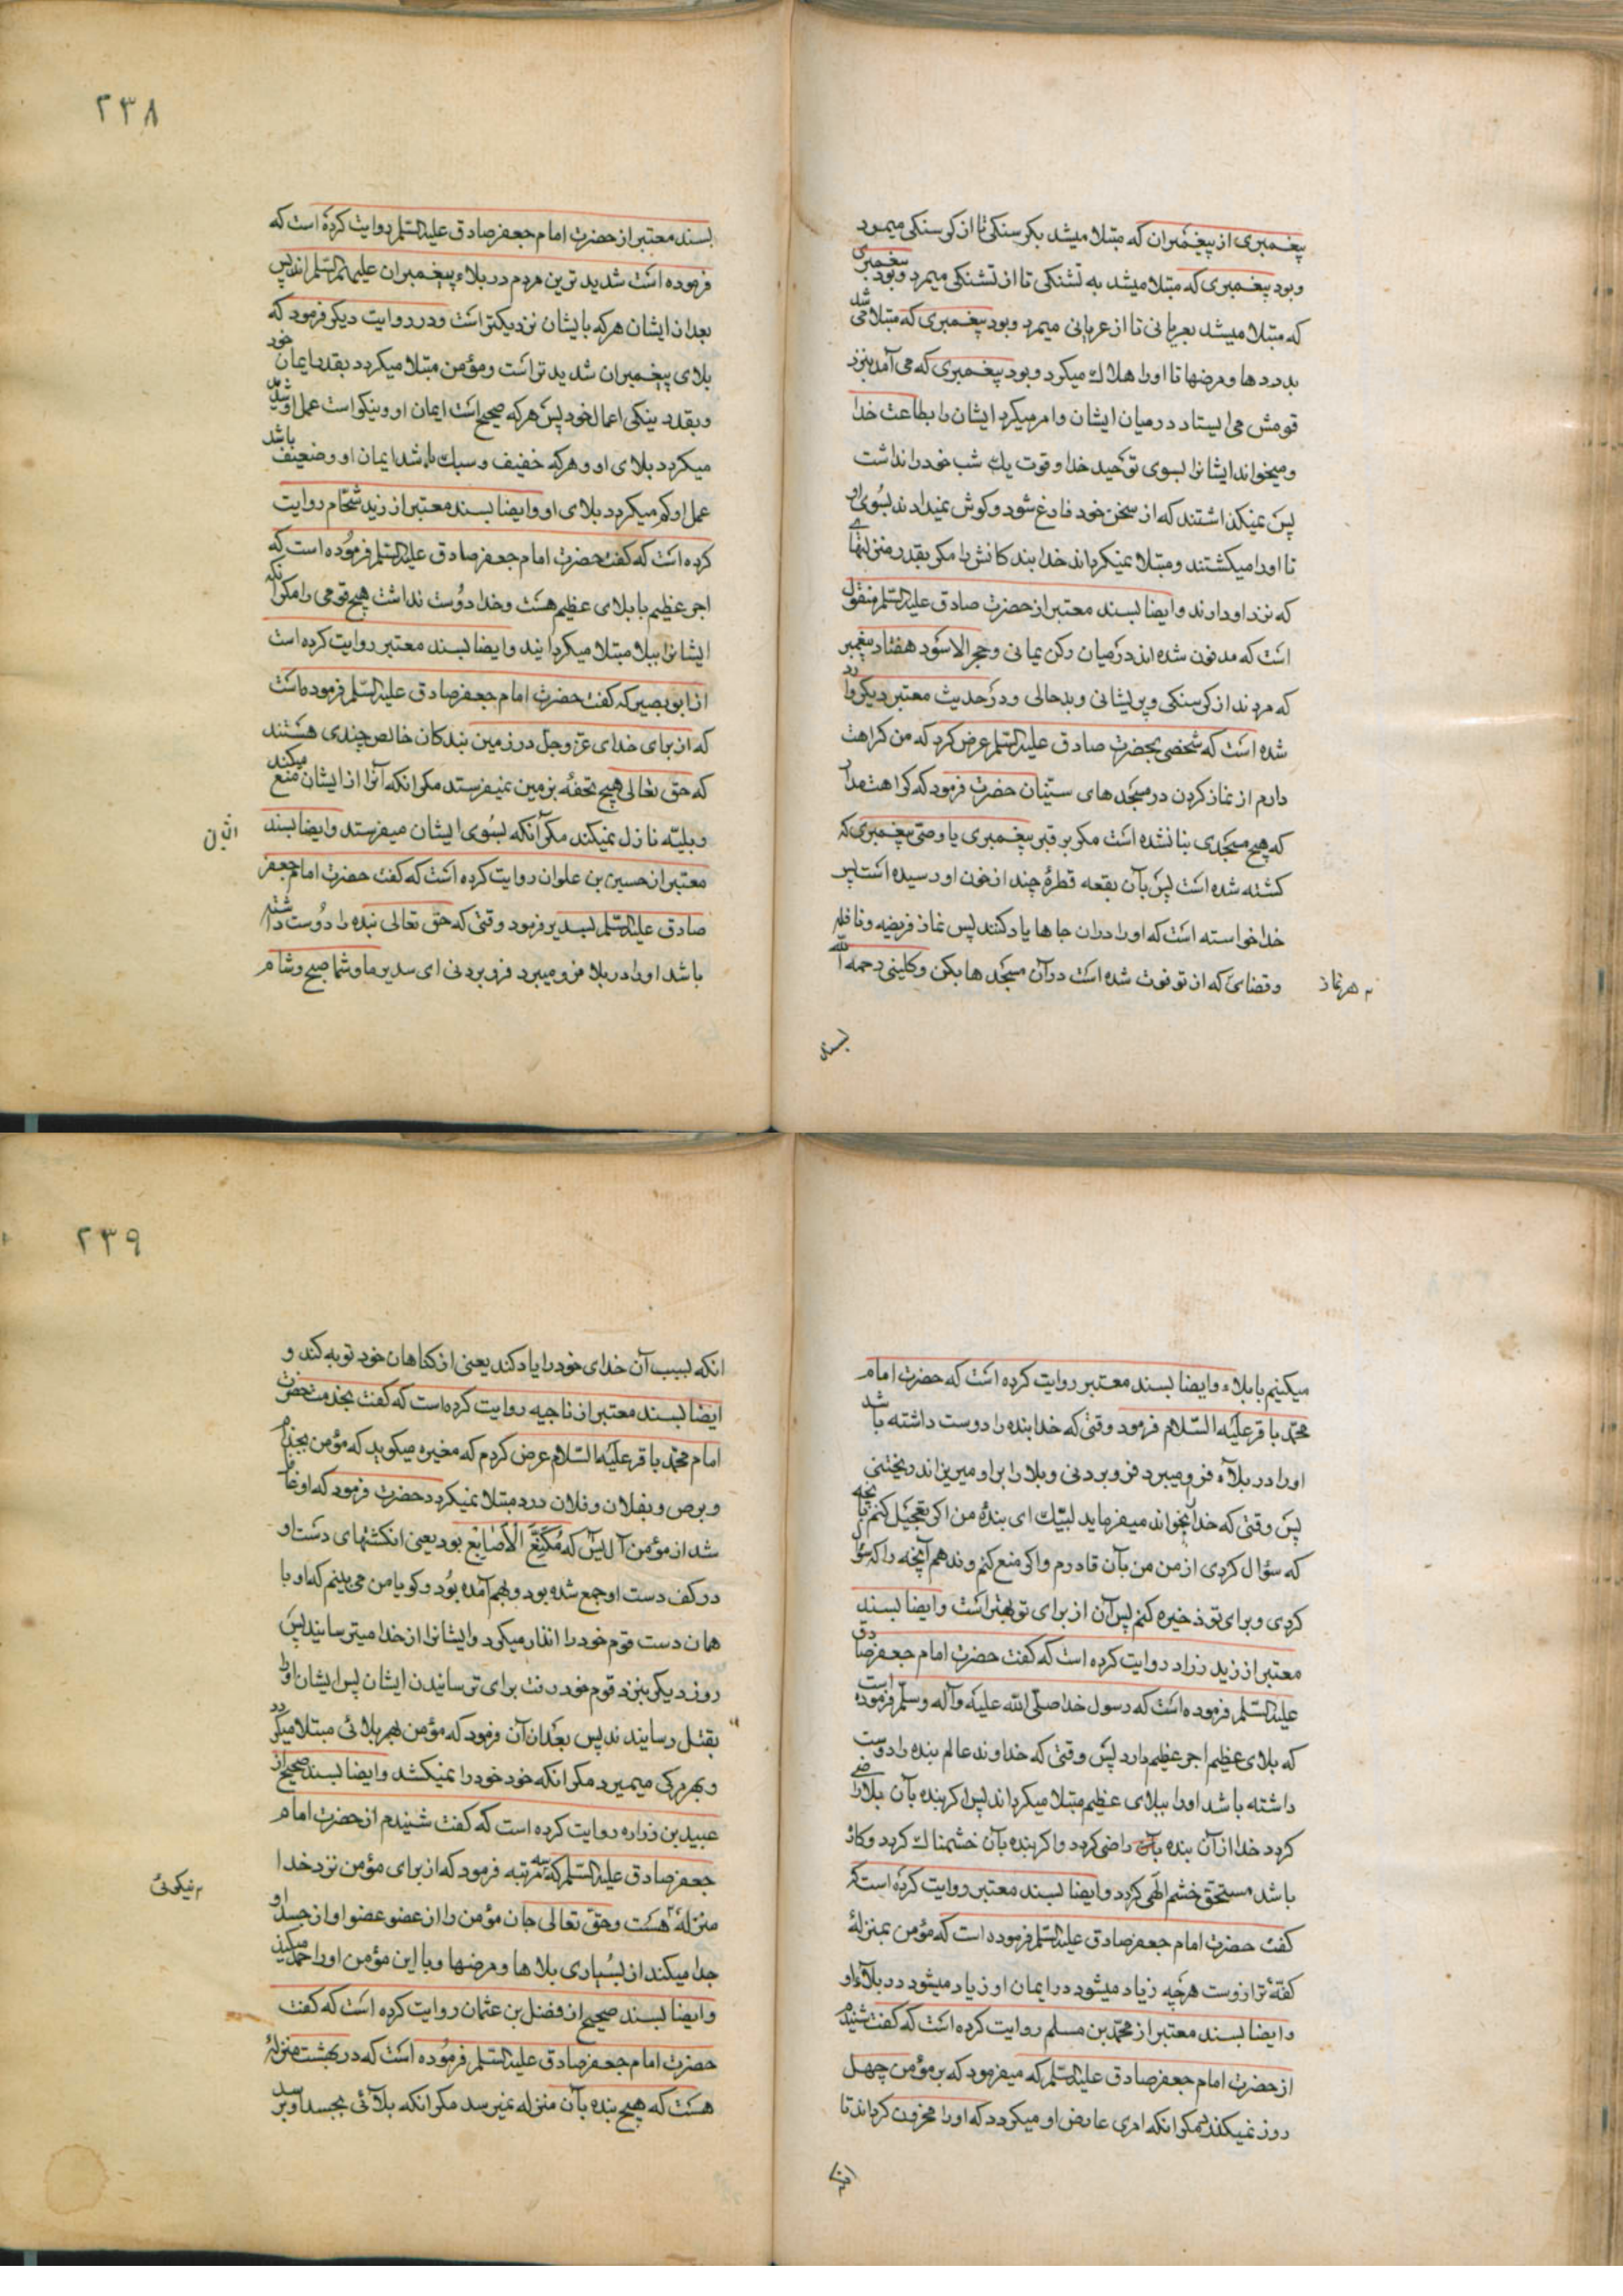 پیغمبری از پیغمبران که مبتلا میشد بکرسنکی تا از کرسنکی میمرد
وبود پیغمبری که مبتلا میشد به تشنکی تا از تشنکی میمرد وبود پیغمبری
که مبتلا میشد بعریانی تا از عریانی میمرد وبود پیغمبری که مبتلا می شد
بدردها ومرضها تا اورا هلاک میکرد وبود پیغمبری که می آمد بنزد
قومش می ایستاد درمیان ایشان وامر میکرد ایشان را بطاعت خدا
ومیخواند ایشانرا بسوی توحید خدا وقوت یک شب خود را نداشت
پس نمیکذاشتند که از سخن خود فارغ شود وکوش نمیدادند بسوی او
تا اورا میکشتند ومبتلا نمیکرداند خدا بندکانش را مکر بقدر منزلتهائی
که نزد او دارند وایضا بسند معتبر از حضرت صادق علیه السلم منقول
است که مدفون شده اند درمیان رکن یمانی وحجر الاسود هفتاد پیغمبر
که مردند از کرسنکی وپریشانی وبدحالی ودر حدیث معتبر دیکر وارد
شده است که شخصی بحضرت صادق علیه السلم عرض کرد که من کراهت
دارم از نماز کردن در مسجدهای سنیان حضرت فرمود که کراهت مدار
که هیچ مسجدی بنا نشده است مکر بر قبر پیغمبری یا وصی پیغمبری که
کشته شده است پس بآن بقعه قطرهٔ چند از خون او رسیده است پس
خدا خواسته است که اورا دران جاها یاد کنند پس نماز فریضه ونافله
وقضائی که از تو فوت شده است درآن مسجدها بکن وکلینی رحمه الله
هر نماز
بسند
٢٣٨
بسند معتبر از حضرت امام جعفر صادق علیه السلم روایت کرده است که
فرموده است شدید ترین مردم در بلاء پیغمبران علیهم السلم اند پس
بعد از ایشان هر که بایشان نزدیکتر است ودر روایت دیکر فرمود که
بلای پیغمبران شدید تر است ومؤمن مبتلا میکردد بقدر ایمان خود
وبقدر نیکی اعمال خود پس هر که صحیح است ایمان او ونیکو است عمل او شدید
میکردد بلای او وهر که خفیف وسبک باشد ایمان او وضعیف باشد
عمل او کم میکردد بلای او وایضا بسند معتبر از زید شحّام روایت
کرده است که کفت حضرت امام جعفر صادق علیه السلم فرموده است که
اجر عظیم با بلای عظیم هست وخدا دوست نداشت هیچ قومی را مکر آنکه
ایشانرا ببلا مبتلا میکردانید وایضا بسند معتبر روایت کرده است
از ابو بصیر که کفت حضرت امام جعفر صادق علیه السلم فرموده است
که از برای خدای عزّ وجلّ در زمین بندکان خالص چندی هستند
که حق تعالی هیچ تحفهٔ بزمین نمیفرستد مکر انکه آنرا از ایشان منع میکند
وبلیّه نازل نمیکند مکر آنکه بسوی ایشان میفرستد وایضا بسند
معتبر از حسین بن علوان روایت کرده است که کفت حضرت امام جعفر
صادق علیه السلم بسدیر فرمود وقتی که حق تعالی بنده را دوست داشته
باشد اورا در بلا فرو میبرد فرو بردنی ای سدیر ما وشما صبح وشام
میکنیم با بلاء وایضا بسند معتبر روایت کرده است که حضرت امام
محمّد باقر علیه السّلام فرمود وقتی که خدا بنده را دوست داشته باشد
اورا در بلآء فرو میبرد فرو بردنی وبلا را بر او میریزاند ریختنی
پس وقتی که خدا را بخواند میفرماید لبّیک ای بندهٔ من اکر تعجیل کنم بآنچه
که سؤال کردی از من من بآن قادرم واکر منع کنم وندهم آنچه را که سؤال
کردی وبرای تو ذخیره کنم پس آن از برای تو بهتر است وایضا بسند
معتبر از زید زراد روایت کرده است که کفت حضرت امام جعفر صادق
علیه السلم فرموده است که رسول خدا صلّی الله علیه وآله وسلّم فرموده است
که بلای عظیم اجر عظیم دارد پس وقتی که خداوند عالم بنده را دوست
داشته باشد اورا ببلای عظیم مبتلا میکرداند پس اکر بنده بآن بلا راضی
کردد خدا از آن بنده بآن راضی کردد واکر بنده بآن خشمناک کردد وکاره
باشد مستحقّ خشم الهی کردد وایضا بسند معتبر روایت کرده است که
کفت حضرت امام جعفر صادق علیه السلم فرموده است که مؤمن بمنزلهٔ
کفهٔ ترازوست هرچه زیاد میشود در ایمان او زیاد میشود در بلاء او
وایضا بسند معتبر از محمّد بن مسلم روایت کرده است که کفت شنیدم
از حضرت امام جعفر صادق علیه السلم که میفرمود که بر مؤمن چهل
روز نمیکذرد مکر انکه امری عارض او میکردد که اورا محزون کرداند تا
انکه
٢٣٩
انکه بسبب آن خدای خود را یاد کند یعنی از کناهان خود توبه کند و
ایضا بسند معتبر از ناجیه روایت کرده است که کفت بخدمت حضرت
امام محمّد باقر علیه السّلام عرض کردم که مغیره میکوید که مؤمن بجذام
وبرص وبفلان وفلان درد مبتلا نمیکردد حضرت فرمود که او غافل
شد از مؤمن آل یس که مُکَنَّعَ الْاَصَابِعِ بود یعنی انکشتهای دست او
در کف دست او جمع شده بود وبهم آمده بود وکویا من می بینم که او با
همان دست قوم خود را انذار میکرد وایشانرا از خدا میترسانید پس
روز دیکر بنزد قوم خود رفت برای ترسانیدن ایشان پس ایشان اورا
بقتل رسانیدند پس بعد از آن فرمود که مؤمن بهر بلائی مبتلا میکردد
وبهر مرکی میمیرد مکر انکه خود خود را نمیکشد وایضا بسند صحیح از
عبید بن زراره روایت کرده است که کفت شنیدم از حضرت امام
جعفر صادق علیه السلم که سه مرتبه فرمود که از برای مؤمن نزد خدا
منزلهٔ هست وحق تعالی جان مؤمن را از عضو عضو او از جسد او
جدا میکند از بسیاری بلاها ومرضها وبا این مؤمن اورا حمد میکند
وایضا بسند صحیح از فضل بن عثمان روایت کرده است که کفت
حضرت امام جعفر صادق علیه السلم فرموده است که در بهشت منزلهٔ
هست که هیچ بنده بآن منزله نمیرسد مکر انکه بلآئی بجسد او برسد
نیکوئی